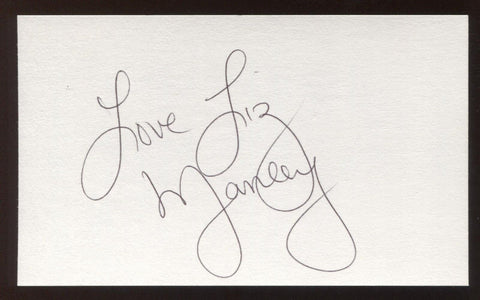 Love Liz
Manley